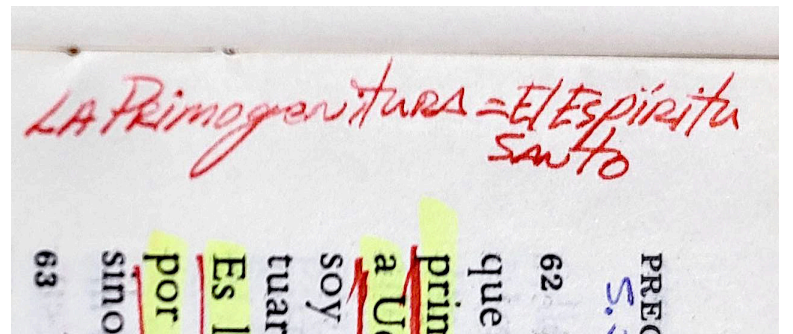 LA PRimogenituRA = El Espíritu
SANto
PREG
S.
62
que
prim
a U
soy
tuar
Es l
por
sino
63